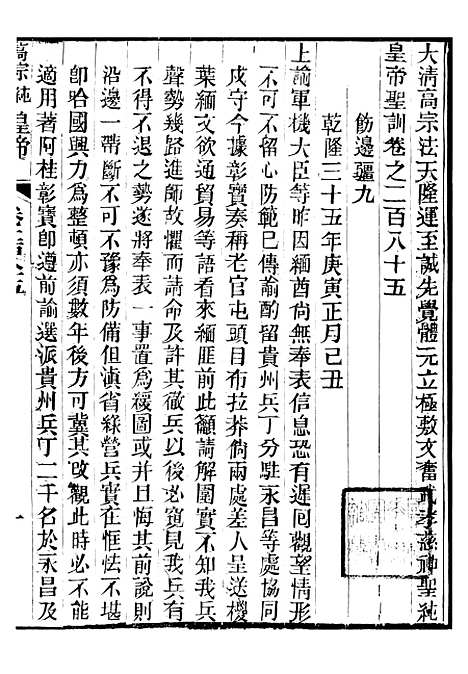 大清高宗法天隆運至誠先覺體元立極敷文奮武孝慈神聖純
皇帝聖訓卷之二百八十五
飭邊疆九
乾隆三十五年庚寅正月己丑
上諭軍機大臣等昨因緬酋尙無奉表信息恐有遲囘觀望情形
不可不留心防範已傳諭酌留貴州兵丁分駐永昌等處協同
戍守今據彰寶奏稱老官屯頭目布拉莽倘兩處差人呈送機
葉緬文欲通貿易等語看來緬匪前此籲請解圍實不知我兵
聲勢幾路進師故懼而請命及許其徹兵以後必窺見我兵有
不得不退之勢遂將奉表一事置爲緩圖或并且悔其前說則
沿邊一帶斷不可不豫爲防備但滇省綠營兵實在恇怯不堪
卽哈國興力爲整頓亦須數年後方可冀其改觀此時必不能
適用著阿桂彰寶卽遵前諭選派貴州兵丁二千名於永昌及
高宗純皇帝
卷二百八十五
一